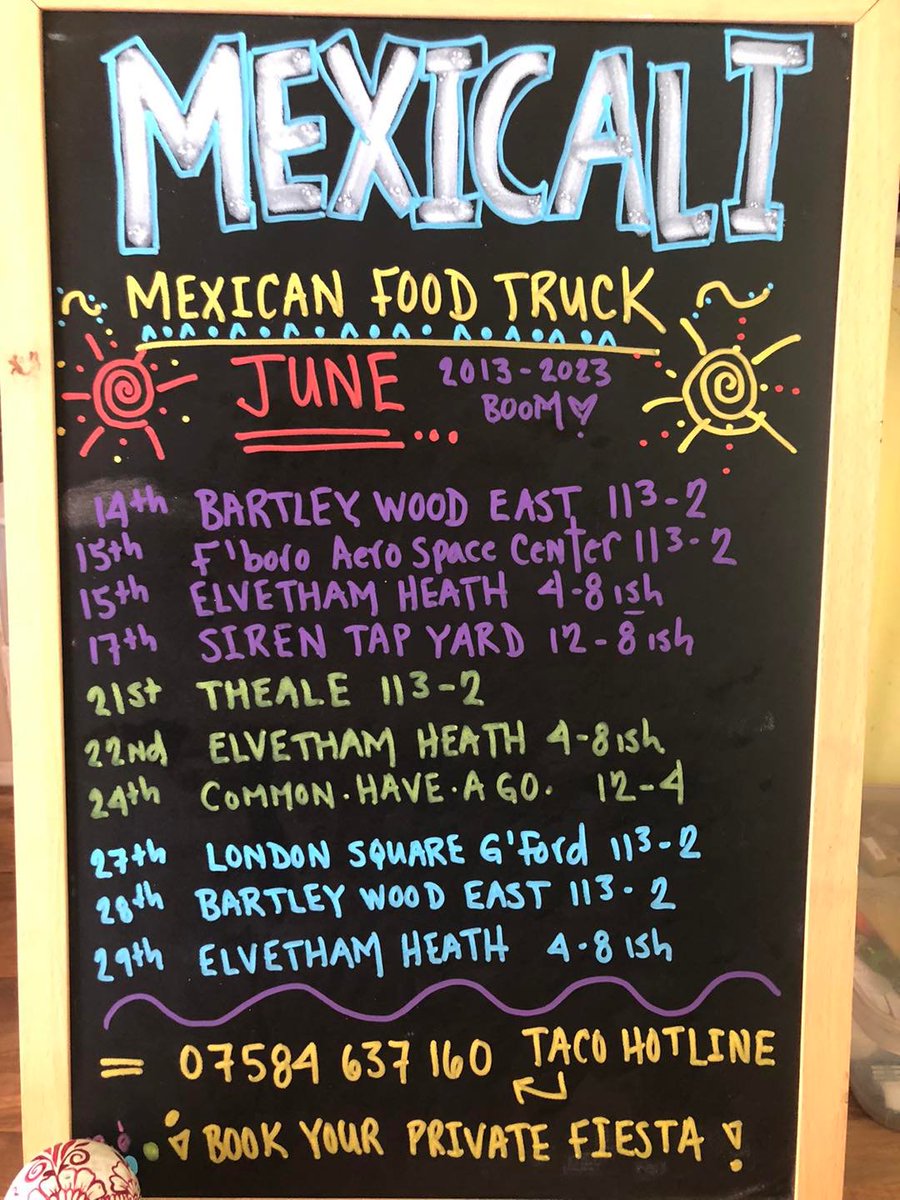 MEXICALI
MEXICAN FOOD TRUCK
JUNE ... 2013-2023
BOOM!
14th BARTLEY WOOD EAST 11³-2
15th F'boro Aero Space Center 11³-2
15th ELVETHAM HEATH 4-8 ish
17th SIREN TAP YARD 12-8 ish
21st THEALE 11³-2
22nd ELVETHAM HEATH 4-8 ish
24th COMMON.HAVE.A GO. 12-4
27th LONDON SQUARE G'Ford 11³-2
28th BARTLEY WOOD EAST 11³-2
29th ELVETHAM HEATH 4-8 ish
= 07584 637 160 TACO HOTLINE
BOOK YOUR PRIVATE FIESTA!